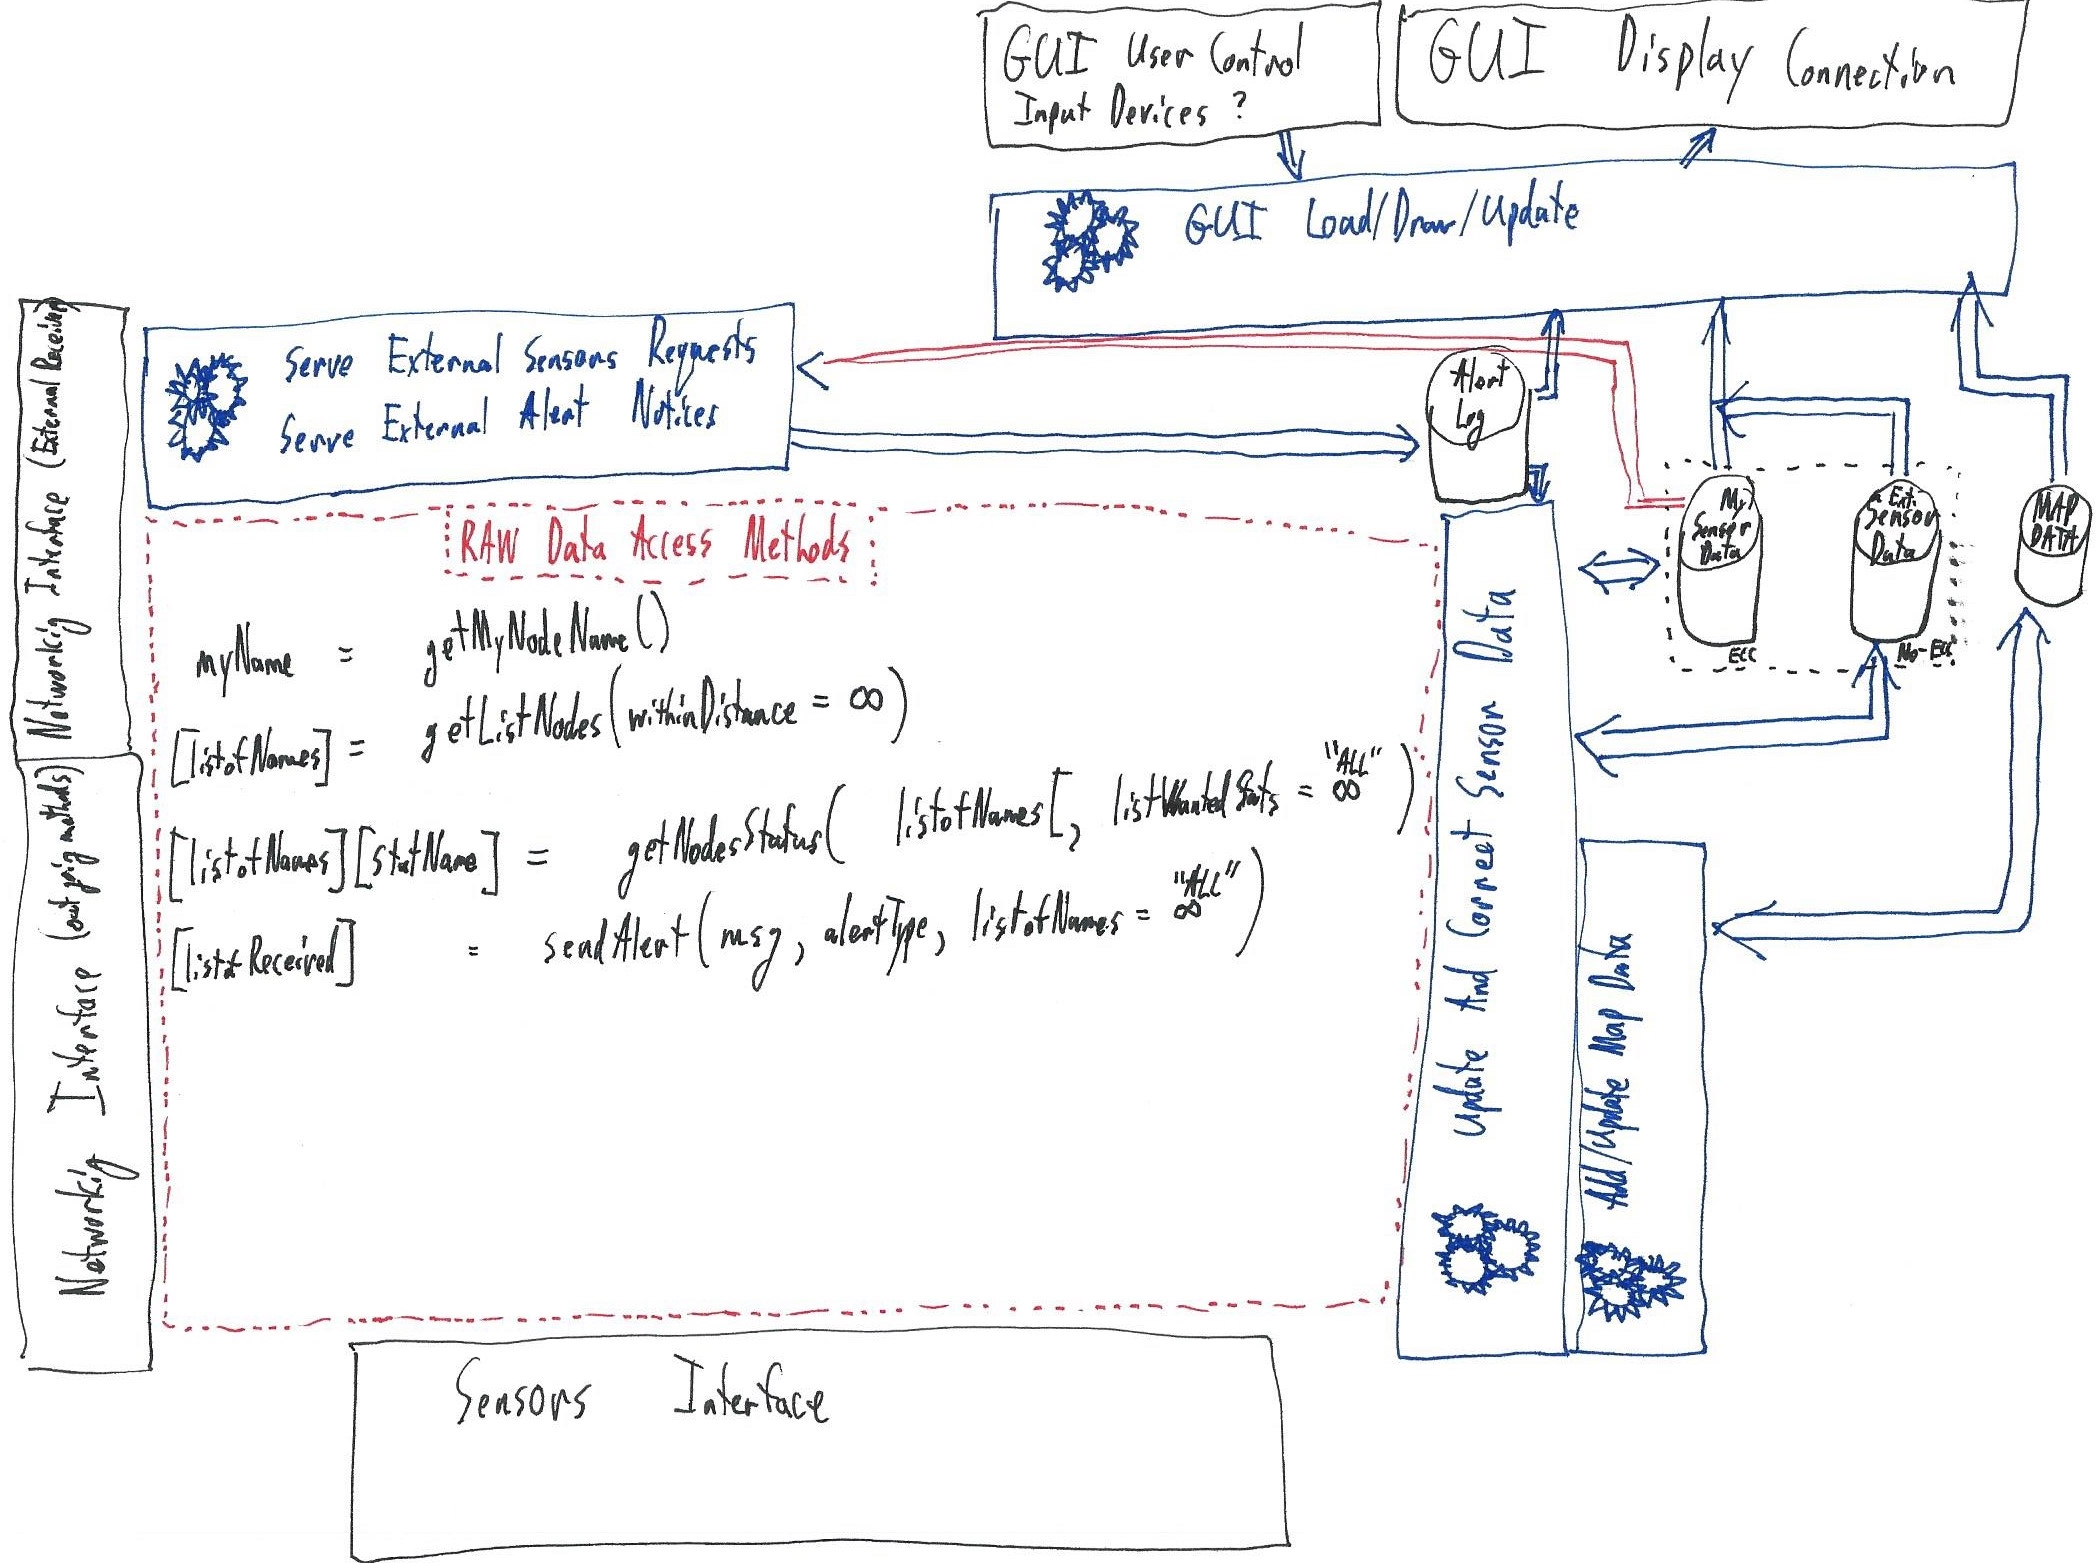 GUI User Control
Input Devices ?
GUI Display Connection
GUI Load/Draw/Update
Networkig Interface (External Receiving)
Serve External Sensors Requests
Serve External Alert Notices
Alert
Log
My
Sensor
Data
ECC
Ext.
Sensor
Data
No-ECC
MAP
DATA
RAW Data Access Methods
myName = getMyNodeName()
[listofNames] = getListNodes(withinDistance = ∞)
[listofNames][statName] = getNodesStatus( listofNames[, listWantedStats = "ALL" ∞ )
[listofReceived] = sendAlert(msg, alertType, listofNames = "ALL" ∞ )
Networkig Interface (outgoing methods)
Update And Correct Sensor Data
Add/Update Map Data
Sensors Interface